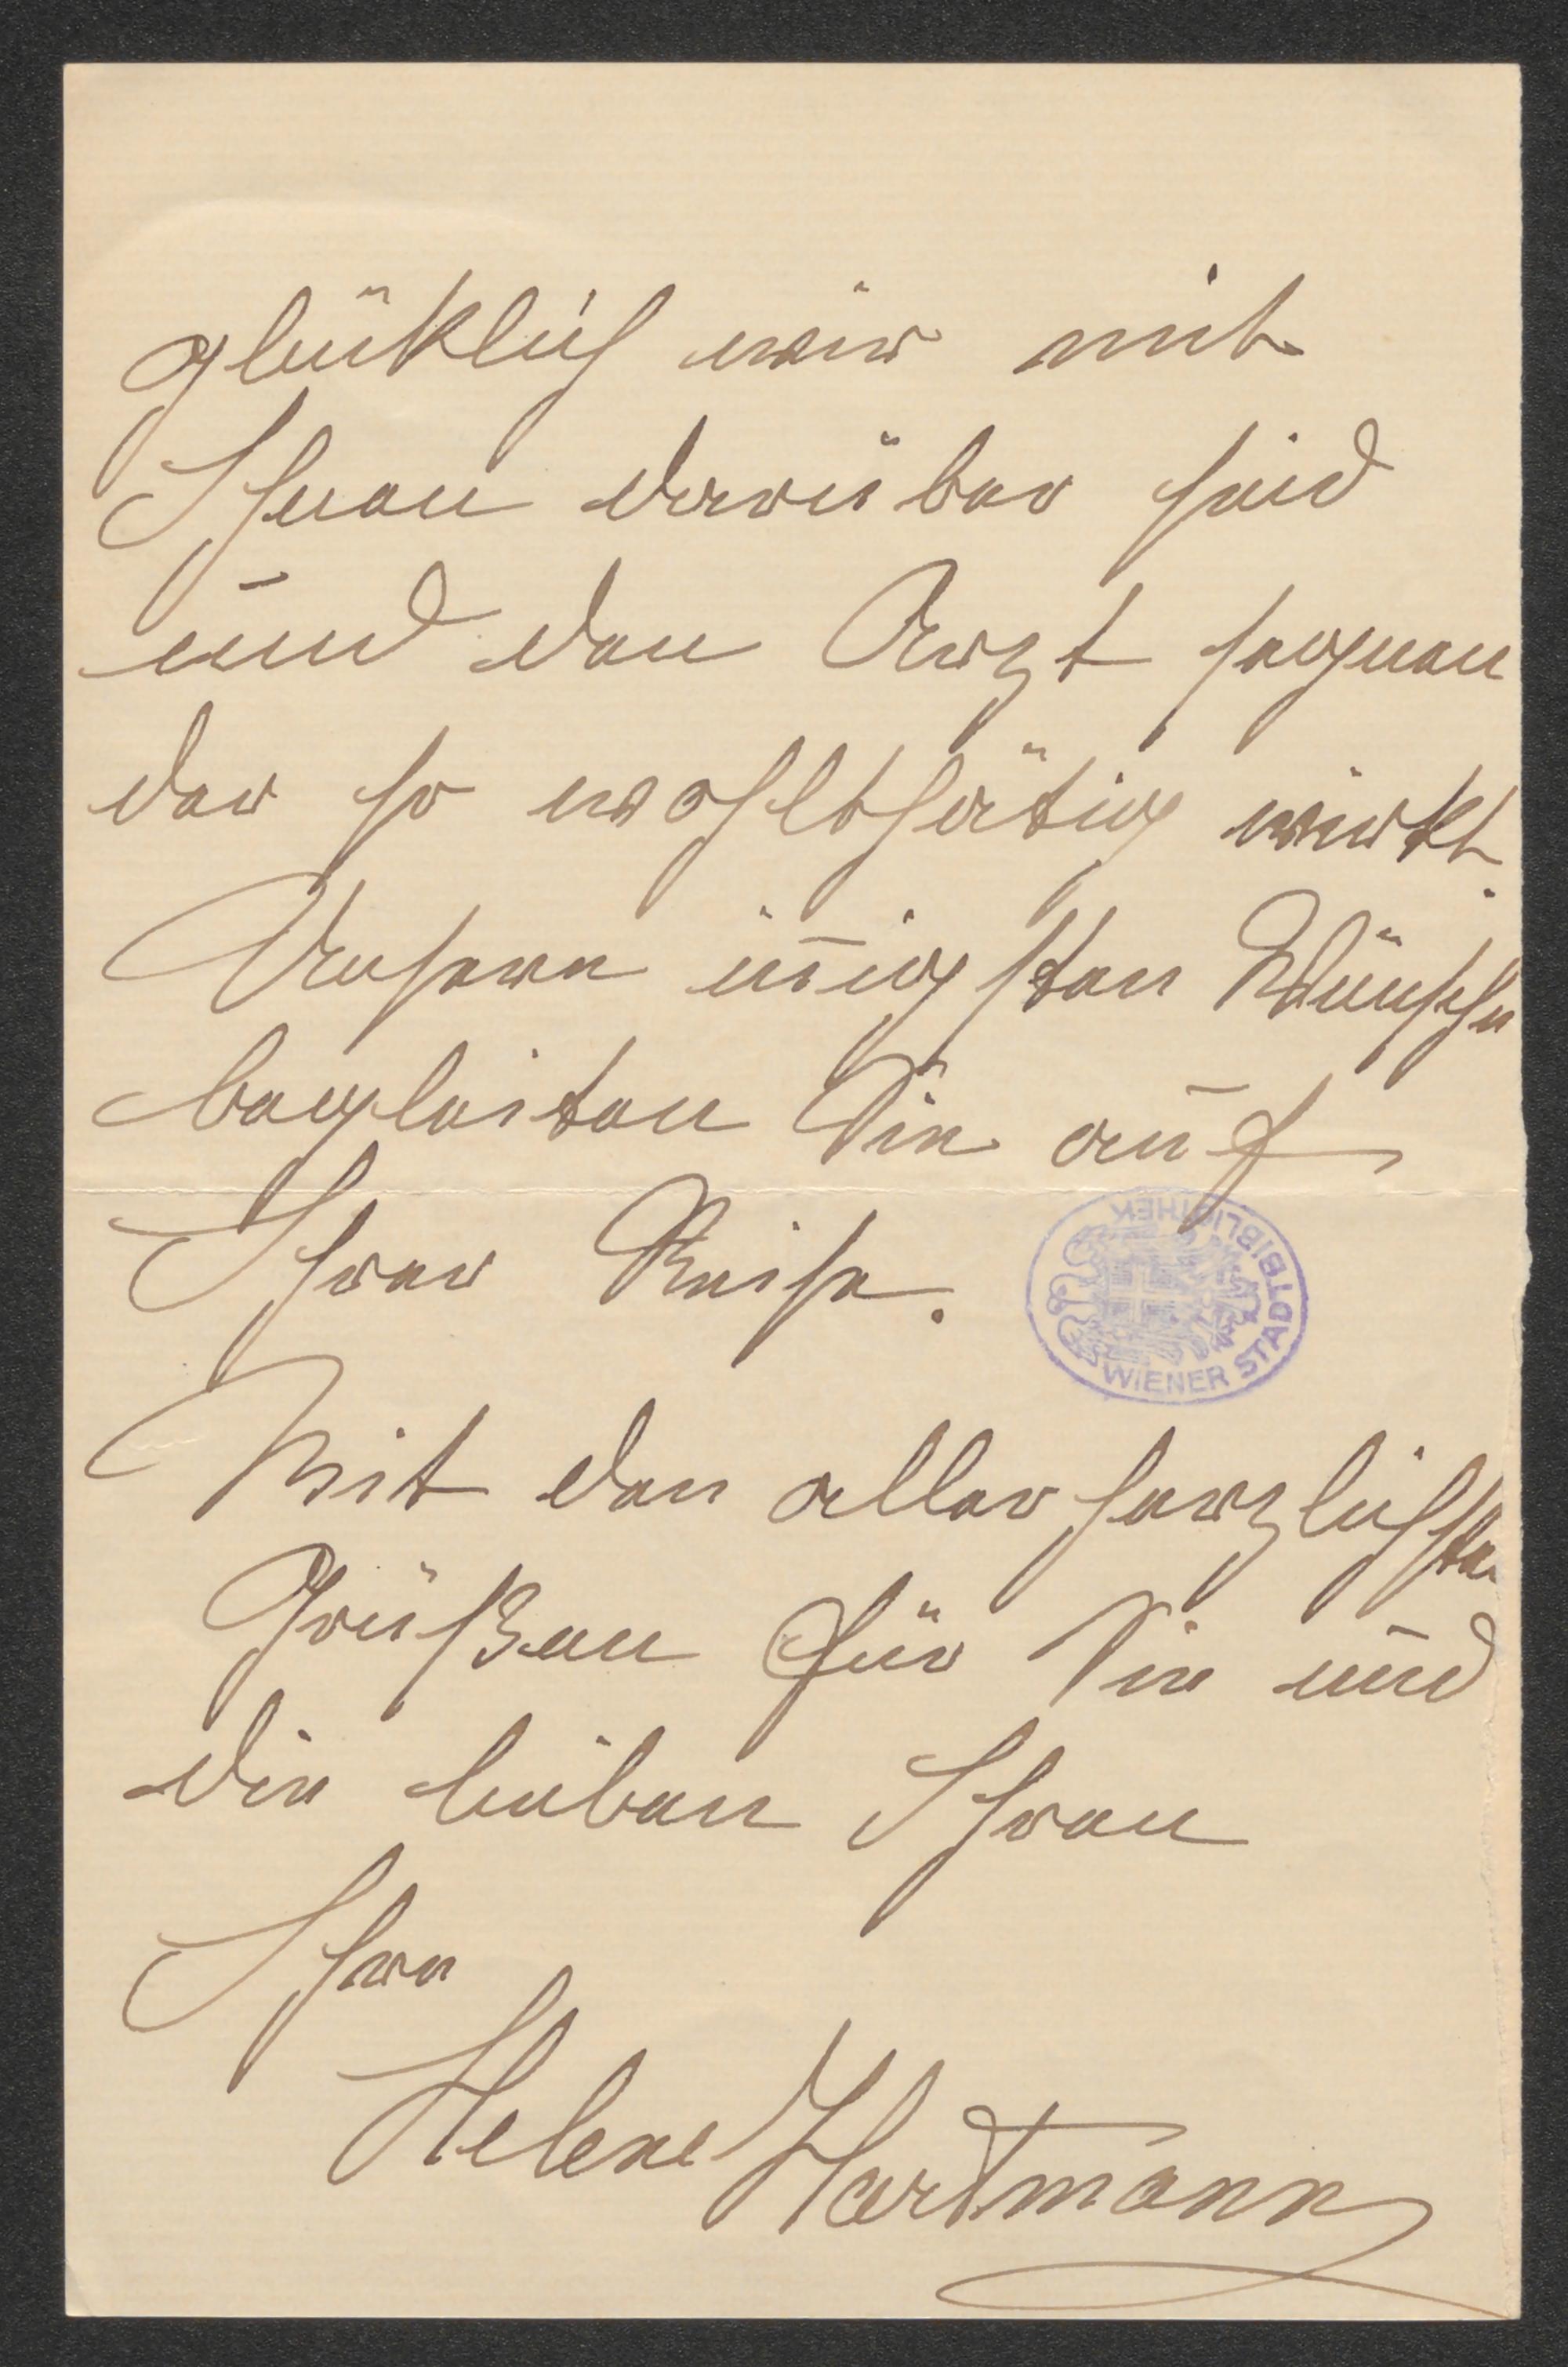 glüklich wir mit
Ihnen darüber sind
und den Arzt segnen
der so wohlthätig wirkt.
Unsere iñigsten Wünsche
begleiten Sie auf
Ihrer Reise.
WIENER STADTBIBLIOTHEK
Mit den allerherzlichsten
Grüßen für Sie und
die lieben Ihren
Ihre
Helene Hartmann